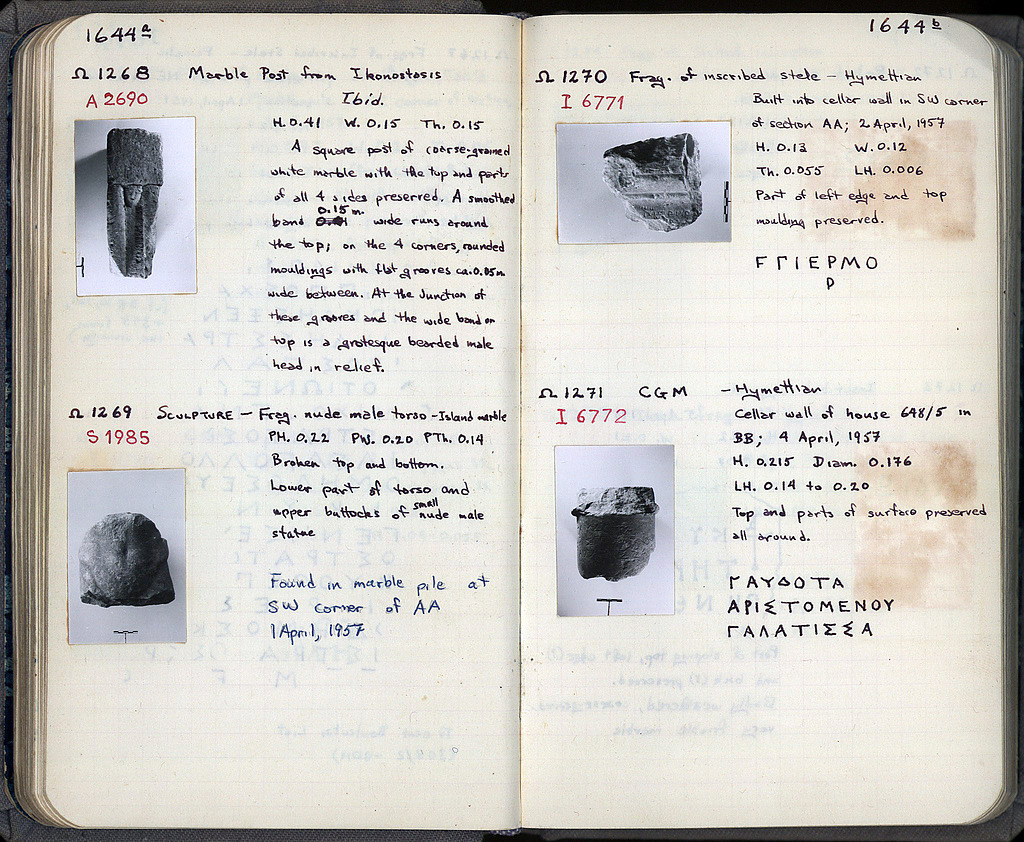 1644ᵃ
Ω 1268 Marble Post from Ikonostasis
A 2690 Ibid.
H. 0.41 W. 0.15 Th. 0.15
A square post of coarse-grained
white marble with the top and parts
of all 4 sides preserved. A smoothed
0.15 m.
band wide runs around
the top; on the 4 corners, rounded
mouldings with flat grooves ca. 0.05 m
wide between. At the Junction of
these grooves and the wide band on
top is a grotesque bearded male
head in relief.
Ω 1269 SCULPTURE – Frag. nude male torso – Island marble
S 1985 PH. 0.22 PW. 0.20 PTh. 0.14
Broken top and bottom.
Lower part of torso and
upper buttocks of small nude male
statue
Found in marble pile at
SW corner of AA
1 April, 1957
1644ᵇ
Ω 1270 Frag. of inscribed stele – Hymettian
I 6771 Built into cellar wall in SW corner
of section AA; 2 April, 1957
H. 0.13 W. 0.12
Th. 0.055 LH. 0.006
Part of left edge and top
moulding preserved.
ΓΓΙΕΡΜΟ
Ρ
Ω 1271 CGM – Hymettian
I 6772 Cellar wall of house 648/5 in
BB; 4 April, 1957
H. 0.215 Diam. 0.176
LH. 0.14 to 0.20
Top and parts of surface preserved
all around.
ΓΛΥΔΟΤΑ
ΑΡΙΣΤΟΜΕΝΟΥ
ΓΑΛΑΤΙΣΣΑ